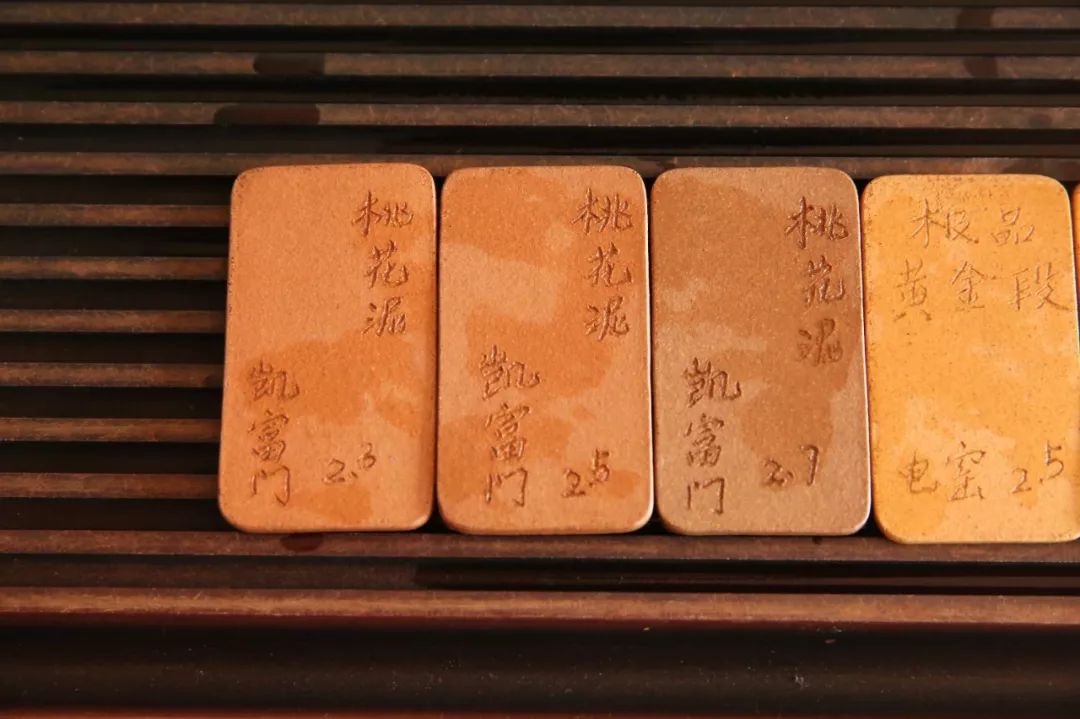 桃花泥
凯富门
2.3
桃花泥
凯富门
2.5
桃花泥
凯富门
2.7
极品
黄金段
电窑 2.5